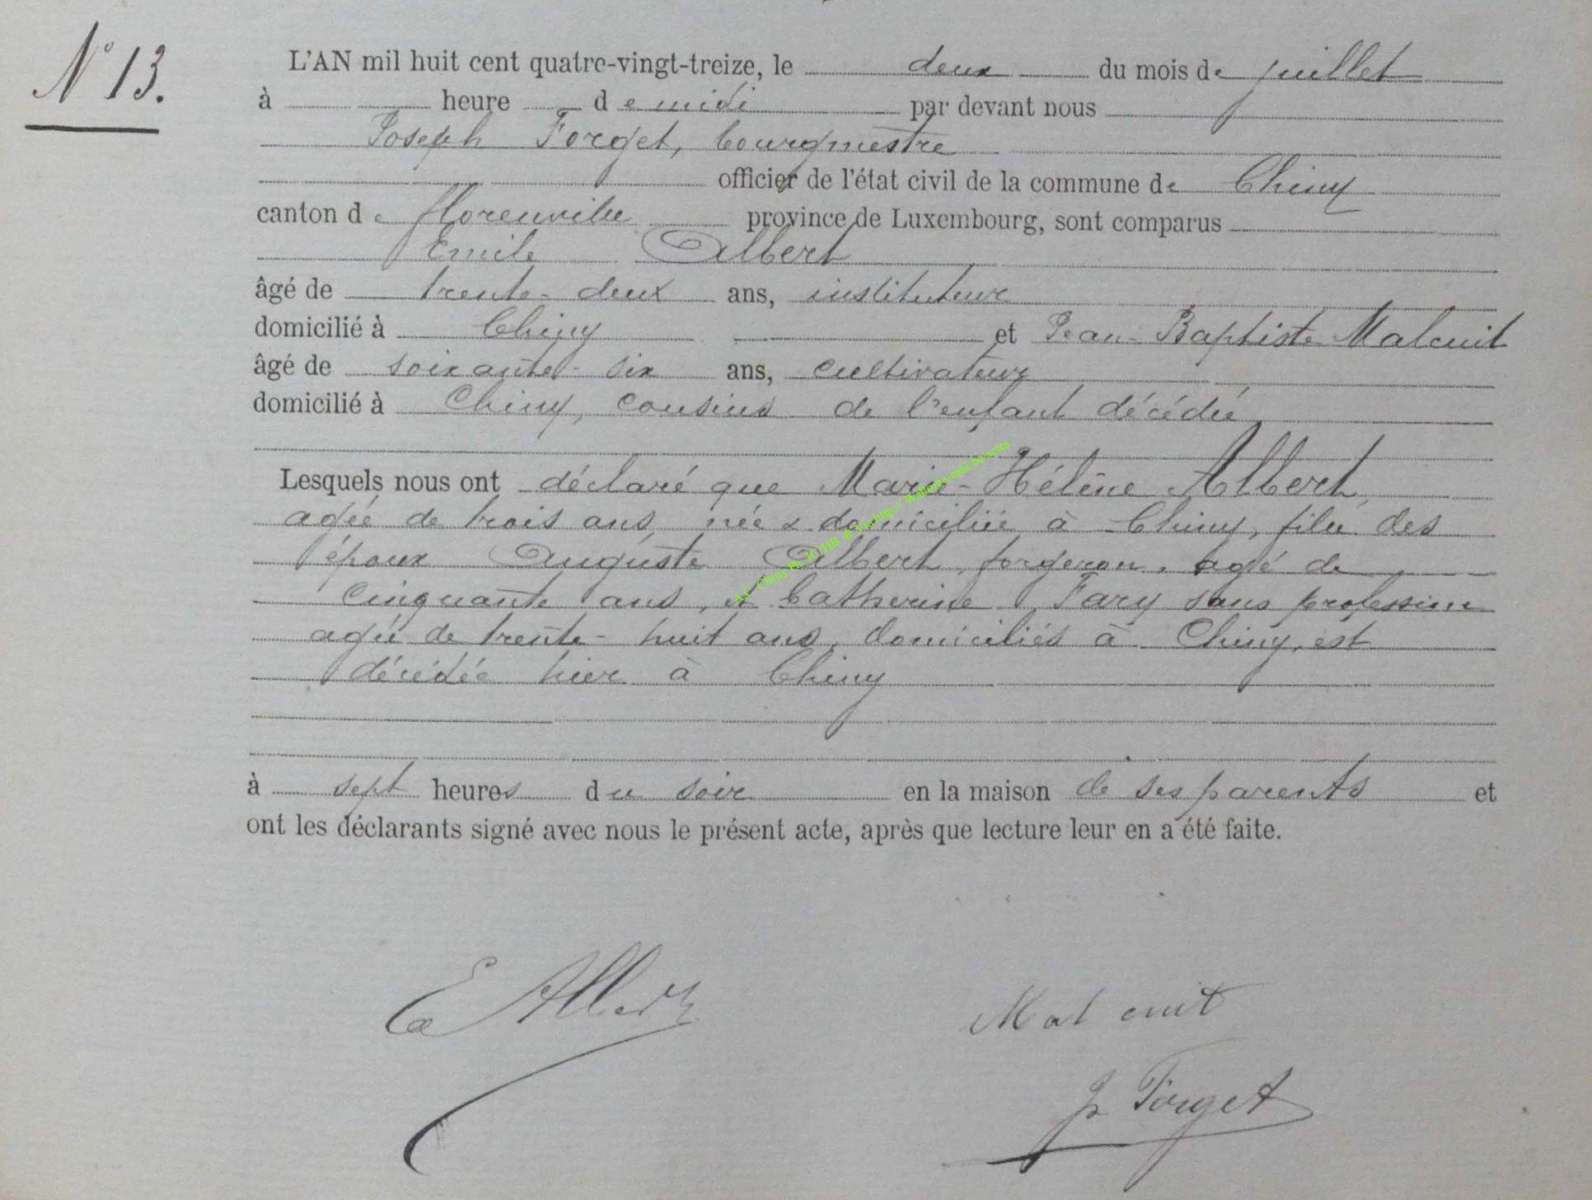 N° 13.
L'AN mil huit cent quatre-vingt-treize, le deux du mois de juillet
à heure de midi par devant nous
Joseph Forget, bourgmestre
officier de l'état civil de la commune de Chiny
canton de florenville province de Luxembourg, sont comparus
Emile Albert
âgé de trente-deux ans, instituteur
domicilié à Chiny et Jean-Baptiste Malcuit
âgé de soixante-six ans, cultivateur
domicilié à Chiny, cousins de l'enfant décédée
Lesquels nous ont déclaré que Marie-Hélène Albert,
agée de trois ans, née & domiciliée à Chiny, fille des
époux Auguste Albert, forgeron, agé de
cinquante ans, et Catherine Fary sans profession
agée de trente-huit ans, domiciliés à Chiny, est
décédée hier à Chiny
à sept heures du soir en la maison de ses parents et
ont les déclarants signé avec nous le présent acte, après que lecture leur en a été faite.
E Albert
Malcuit
J. Forget